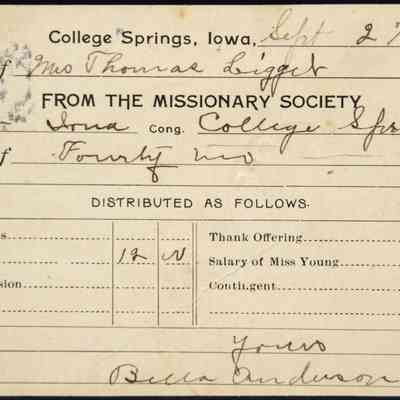 College Springs, Iowa, Sept 27
of Mrs Thomas Ligget
FROM THE MISSIONARY SOCIETY
Iowa Cong. College Spr
of Fourty two
DISTRIBUTED AS FOLLOWS.
s Thank Offering
12 Salary of Miss Young
sion Contingent
Yours
Bella Anderson